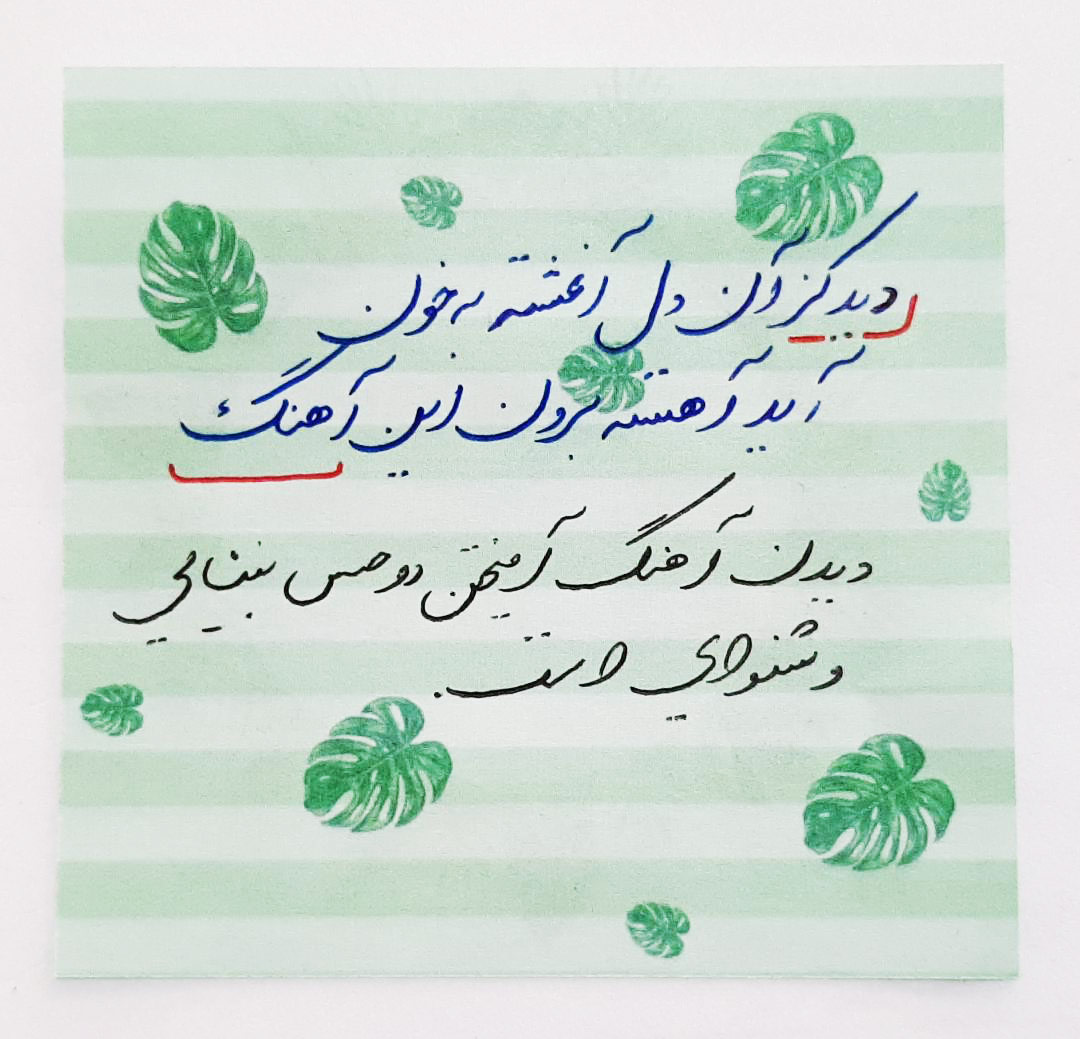 دید کز آن دل آغشته به خون
آید آهسته برون این آهنگ
دیدن آهنگ آمیختن دو حس بینایی
و شنوایی است.